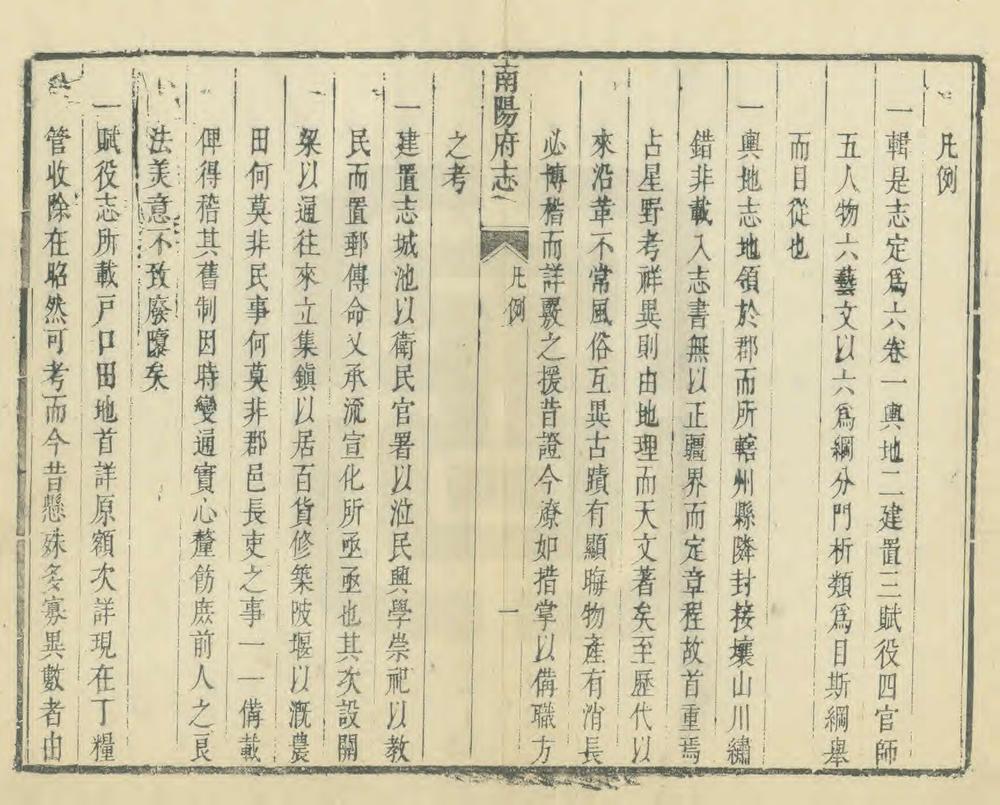 凡例
一輯是志定爲六卷一輿地二建置三賦役四官師
五人物六藝文以六爲綱分門析類爲目斯綱舉
而目從也
一輿地志地領於郡而所轄州縣隣封接壤山川繡
錯非載入志書無以正疆界而定章程故首重焉
占星野考祥異則由地理而天文著矣至歷代以
來沿革不常風俗互異古蹟有顯晦物產有消長
必博稽而詳覈之援昔證今瞭如措掌以備職方
之考
南陽府志
凡例
一
一建置志城池以衛民官署以涖民興學崇祀以教
民而置郵傳命又承流宣化所亟亟也其次設關
梁以通往來立集鎮以居百貨修築陂堰以溉農
田何莫非民事何莫非郡邑長吏之事一一備載
俾得稽其舊制因時變通實心釐飭庶前人之良
法美意不致廢隳矣
一賦役志所載戸口田地首詳原額次詳現在丁糧
管收除在昭然可考而今昔懸殊多寡異數者由